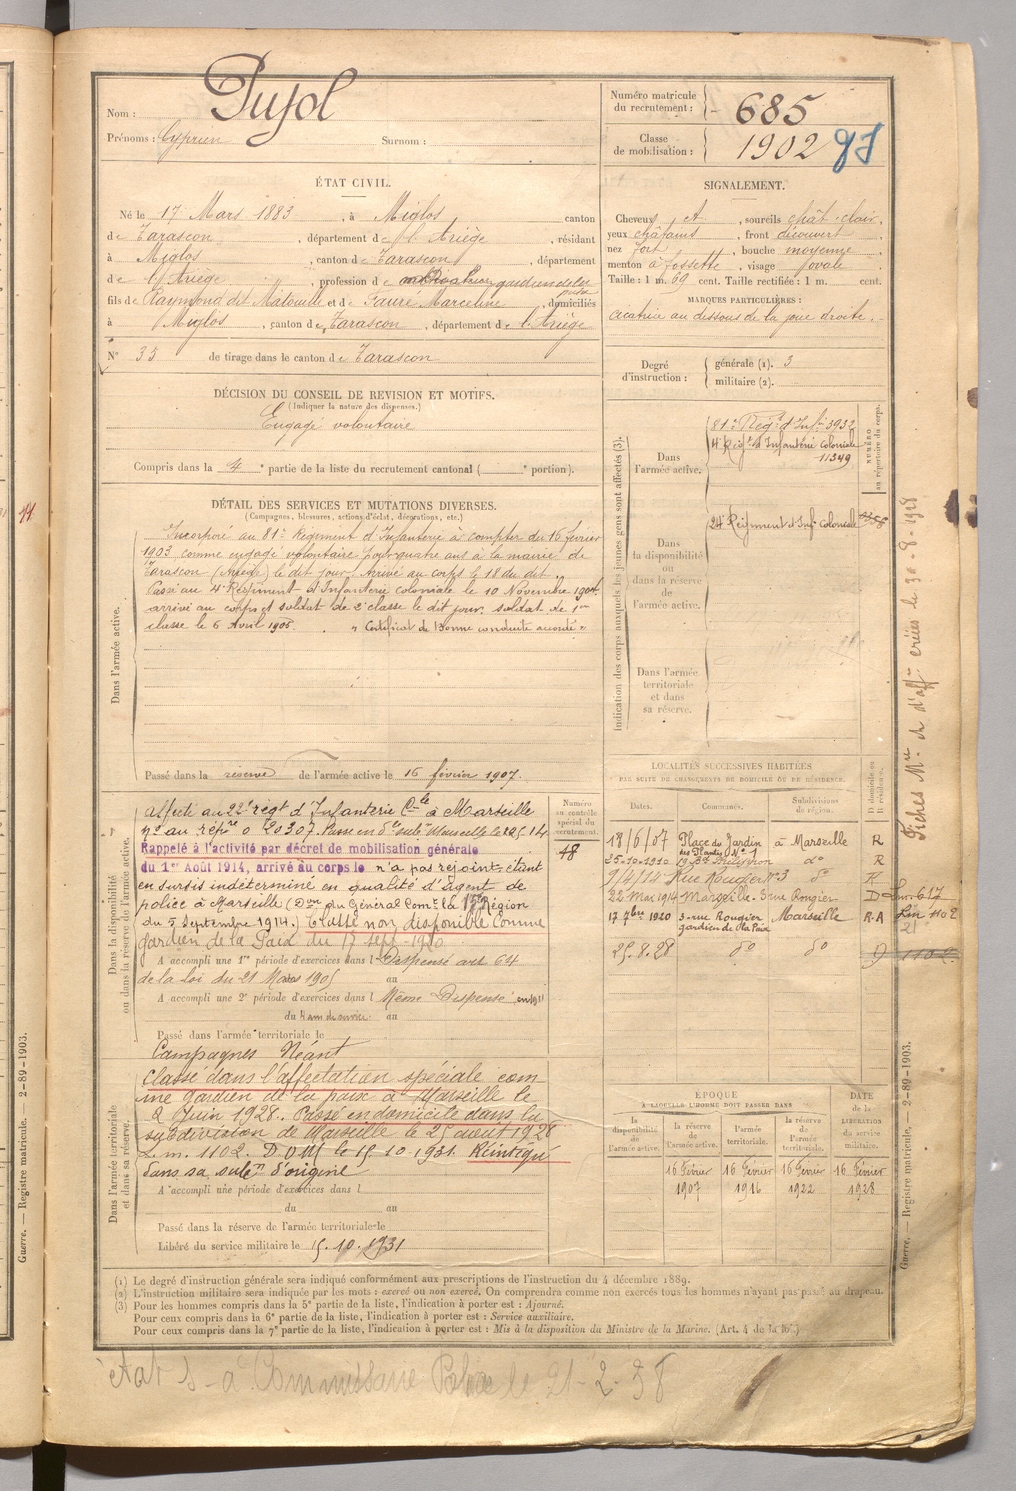 Nom : Pujol
Prénoms : Cyprien Surnom :
Numéro matricule du recrutement : 685
Classe de mobilisation : 1902
ÉTAT CIVIL.
Né le 17 Mars 1883, à Miglos canton
de Tarascon, département de l'Ariège, résidant
à Miglos, canton de Tarascon, département
de l'Ariège, profession de cultivateur gardien de la paix
fils de Raymond dit Matouille et de Faure Marceline, domiciliés
à Miglos, canton de Tarascon, département de l'Ariège
N° 35 de tirage dans le canton de Tarascon
SIGNALEMENT.
Cheveux et, sourcils chât. clair,
yeux châtains, front découvert
nez fort, bouche moyenne
menton à fossette, visage ovale
Taille : 1 m. 69 cent. Taille rectifiée : 1 m. cent.
MARQUES PARTICULIÈRES :
cicatrice au dessous de la joue droite.
Degré d'instruction : générale (1). 3
militaire (2).
DÉCISION DU CONSEIL DE REVISION ET MOTIFS.
(Indiquer la nature des dispenses.)
Engagé volontaire
Compris dans la 4e partie de la liste du recrutement cantonal ( e portion).
DÉTAIL DES SERVICES ET MUTATIONS DIVERSES.
(Campagnes, blessures, actions d'éclat, décorations, etc.)
Dans l'armée active.
Incorporé au 81e Régiment d'Infanterie à compter du 16 février
1903 comme engagé volontaire pour quatre ans à la mairie de
Tarascon (Ariège) le dit jour. Arrivé au corps le 18 du dit.
Passé au 4e Régiment d'Infanterie coloniale le 10 Novembre 1904.
arrivé au corps et soldat de 2e classe le dit jour. soldat de 1re
classe le 6 Avril 1906. « Certificat de bonne conduite accordé »
Passé dans la réserve de l'armée active le 16 février 1907.
Indication des corps auxquels les jeunes gens sont affectés (3).
NUMÉRO au répertoire du corps.
Dans l'armée active.
81e Régt d'Infie 3932
4e Régt d'Infanterie Coloniale
11349
Dans la disponibilité ou dans la réserve de l'armée active.
24e Régiment d'Infie Coloniale
Dans l'armée territoriale et dans sa réserve.
Dans la disponibilité ou dans la réserve de l'armée active.
Affecté au 22e régt d'Infanterie Cle à Marseille
no au répre 0 20307. Passé en de subon Marseille le 22.5.14
Rappelé à l'activité par décret de mobilisation générale
du 1er Août 1914, arrivé au corps le n'a pas rejoint étant
en sursis indéterminé en qualité d'Agent de
police à Marseille (Don du Général Comt la 15e Région
du 5 Septembre 1914.) Classé non disponible comme
gardien de la Paix du 17 sept. 1920
A accompli une 1re période d'exercices dans l Dispensé art 64
de la Loi du 21 Mars 1905 au
A accompli une 2e période d'exercices dans l Même Dispense
du au
Passé dans l'armée territoriale le
Campagnes Néant
Numéro au contrôle spécial du recrutement.
48
LOCALITÉS SUCCESSIVES HABITÉES
PAR SUITE DE CHANGEMENTS DE DOMICILE OU DE RÉSIDENCE.
Dates. Communes. Subdivisions de région. D domicile ou R résidence.
18/6/07 Place du Jardin des Plantes N° 1 à Marseille R
25-10-1910 do R
9/4/14 Rue Rougier N°3 do R
22 Mai 1914 Marseille. 3 rue Rougier D
17 7bre 1920 3 rue Rougier Marseille R.A
gardien de la Paix
25.8.28 do do D 1102
Dans l'armée territoriale et dans sa réserve.
Classé dans l'affectation spéciale com
me gardien de la paix à Marseille le
2 Juin 1928. Passé en domicile dans la
subdivision de Marseille le 25 août 1928
L.m. 1102. D. OM le 15.10.1931. Réintégré
dans sa subon d'origine
A accompli une période d'exercices dans l
du au
Passé dans la réserve de l'armée territoriale le
Libéré du service militaire le 15.10.1931
ÉPOQUE
À LAQUELLE L'HOMME DOIT PASSER DANS
la disponibilité de l'armée active. la réserve de l'armée active. l'armée territoriale. la réserve de l'armée territoriale. DATE de la LIBÉRATION du service militaire.
16 Février 16 Février 16 Février 16 Février
1907 1916 1922 1928
(1) Le degré d'instruction générale sera indiqué conformément aux prescriptions de l'instruction du 4 décembre 1889.
(2) L'instruction militaire sera indiquée par les mots : exercé ou non exercé. On comprendra comme non exercés tous les hommes n'ayant pas passé au drapeau.
(3) Pour les hommes compris dans la 5e partie de la liste, l'indication à porter est : Ajourné.
Pour ceux compris dans la 6e partie de la liste, l'indication à porter est : Service auxiliaire.
Pour ceux compris dans la 7e partie de la liste, l'indication à porter est : Mis à la disposition du Ministre de la Marine. (Art. 4 de la loi.)
à Commissaire Police le 21-2-38
Fiches Mle et d'affon créées le 30-8-1928
Guerre. — Registre matricule. — 2-89-1903.
Guerre. — Registre matricule. — 2-89-1903.